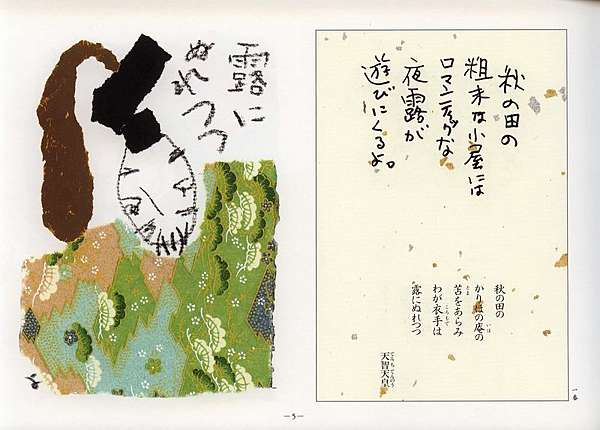 秋の田の
粗末な小屋には
ロマンティックな
夜露が
遊びにくるよ。
秋の田の
かり穂の庵の
苫をあらみ
わが衣手は
露にぬれつつ
天智天皇
露に
ぬれつつ
—5—